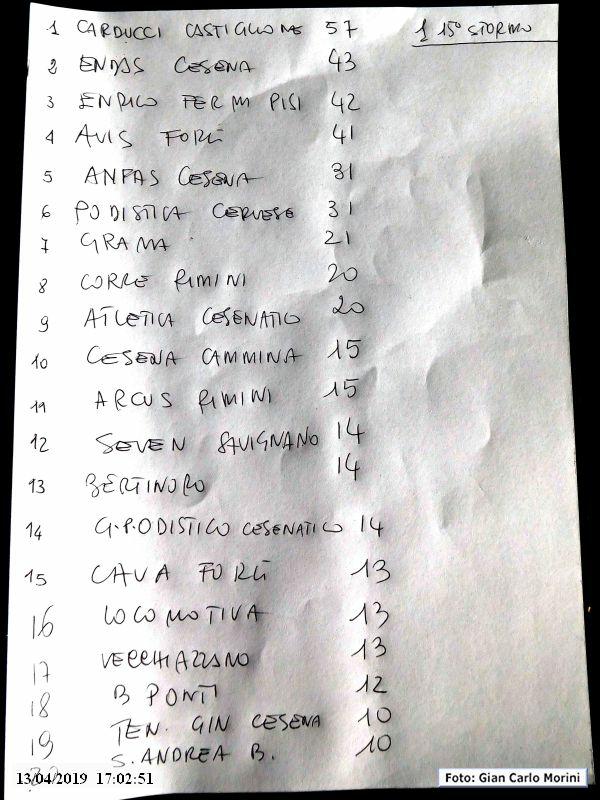 1 CARDUCCI CASTIGLIONE 57
1 15° STORMO
2 ENDAS CESENA 43
3 ENRICO FERMI PISI 42
4 AVIS FORLÌ 41
5 ANPAS CESENA 31
6 PODISTICA CERVESE 31
7 GRAMA 21
8 CORRE RIMINI 20
9 ATLETICA CESENATICO 20
10 CESENA CAMMINA 15
11 ARCUS RIMINI 15
12 SEVEN SAVIGNANO 14
13 BERTINORO 14
14 G.PODISTICO CESENATICO 14
15 CAVA FORLÌ 13
16 LOCOMOTIVA 13
17 VECCHIAZZANO 13
18 B PONTI 12
19 TEN. GIN CESENA 10
S. ANDREA B. 10
13/04/2019 17:02:51
Foto: Gian Carlo Morini